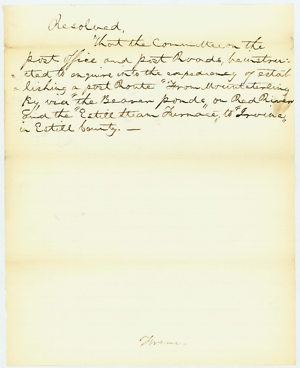 Resolved,
That the Committee on the
post office and post Roads, be instruc-
ted to enquire into the expediency of estab
lishing a post Route "From Mountsterling
Ky via "the Beaver ponds," on Red River
and the "Estill Steam Furnace," to "Irvine,"
in Estill County. —